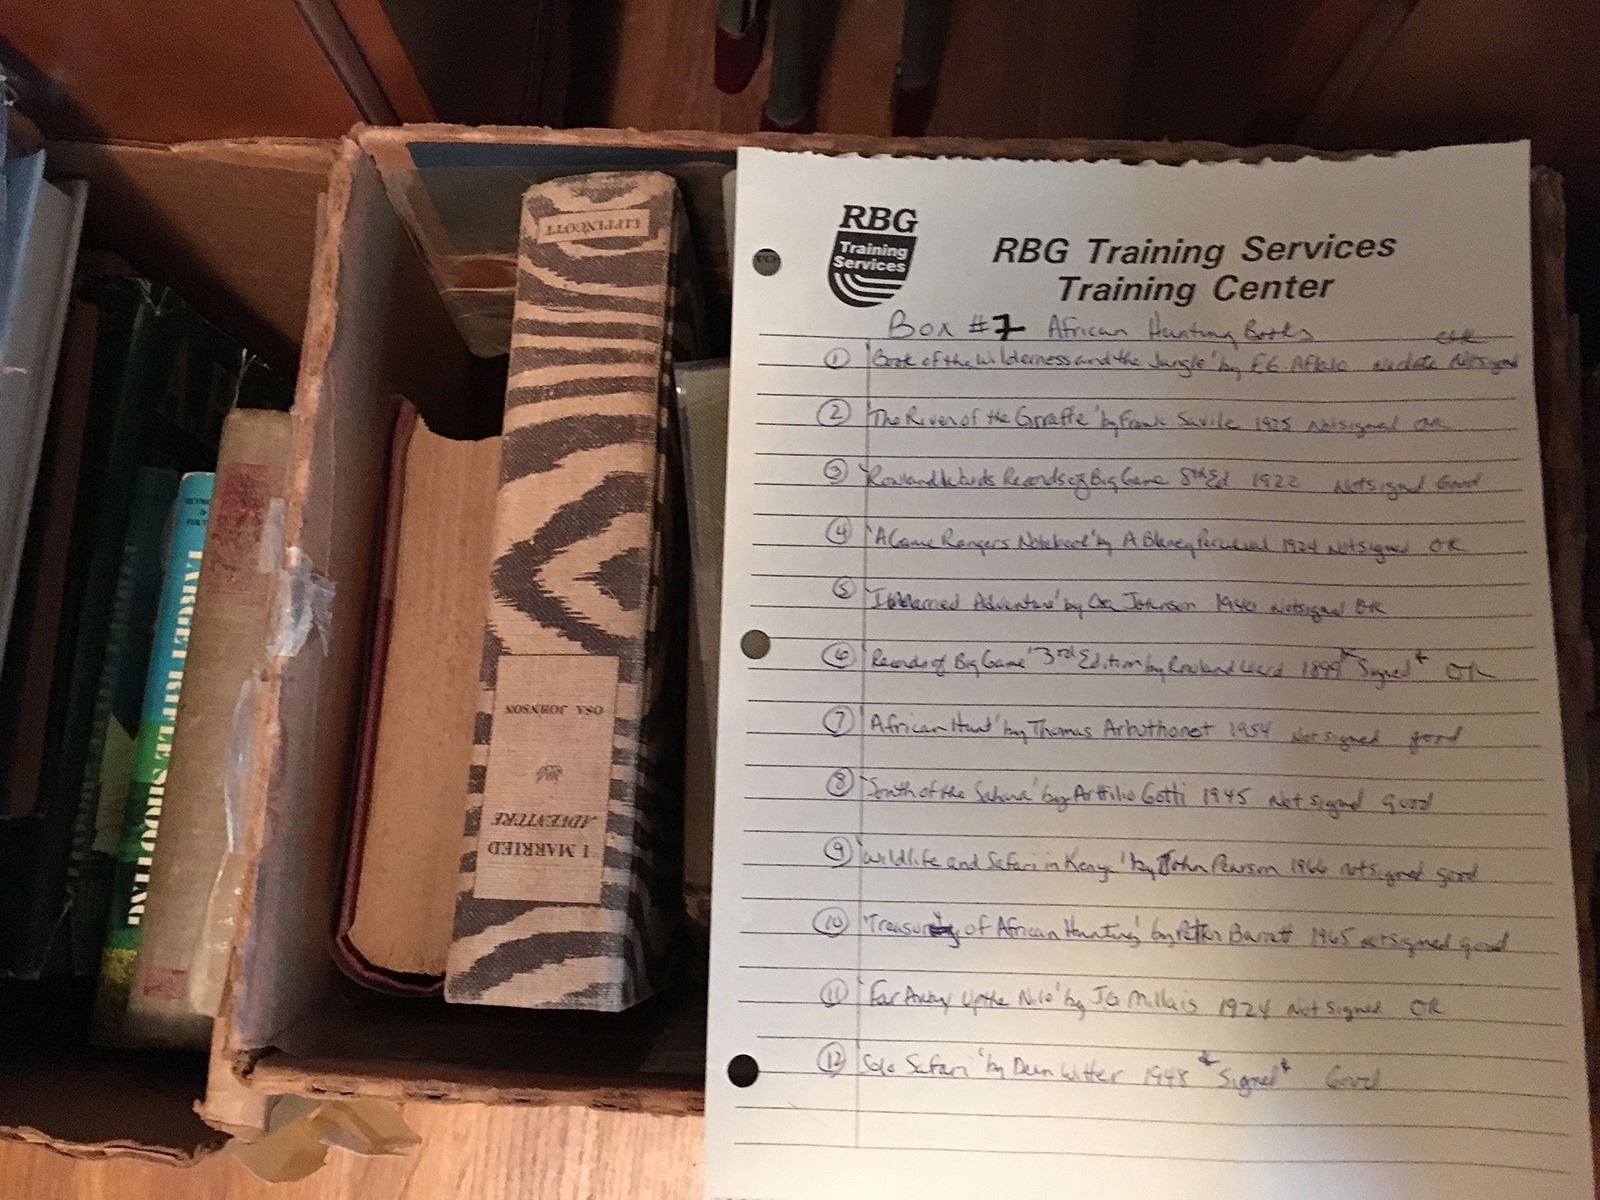 LIPPINCOTT
OSA JOHNSON
I MARRIED
ADVENTURE
TARGET RIFLE SHOOTING
RBG
Training
Services
RBG Training Services
Training Center
Box #7 African Hunting Books
① 'Book of the Wilderness and the Jungle' by F.G. Aflalo No date Not signed
② 'The River of the Giraffe' by Frank Savile 1925 Not signed OK
③ Rowland Wards Records of Big Game 8th Ed 1922 Not signed Good
④ 'A Game Rangers Notebook' by A Blaney Percival 1924 Not signed OK
⑤ 'I Married Adventure' by Osa Johnson 1940 Not signed OK
⑥ 'Records of Big Game' 3rd Edition by Rowland Ward 1899 *Signed* OK
⑦ 'African Hunt' by Thomas Arbuthonot 1954 Not signed good
⑧ 'South of the Sahara' by Arttilio Gotti 1945 Not signed good
⑨ 'Wildlife and Safari in Kenya' by John Pearson 1966 not signed good
⑩ 'Treasury of African Hunting' by Peter Barrett 1965 not signed good
⑪ 'Far Away Up the Nile' by JG Millais 1924 Not signed OK
⑫ 'Solo Safari' by Dean Witter 1948 *Signed* Good